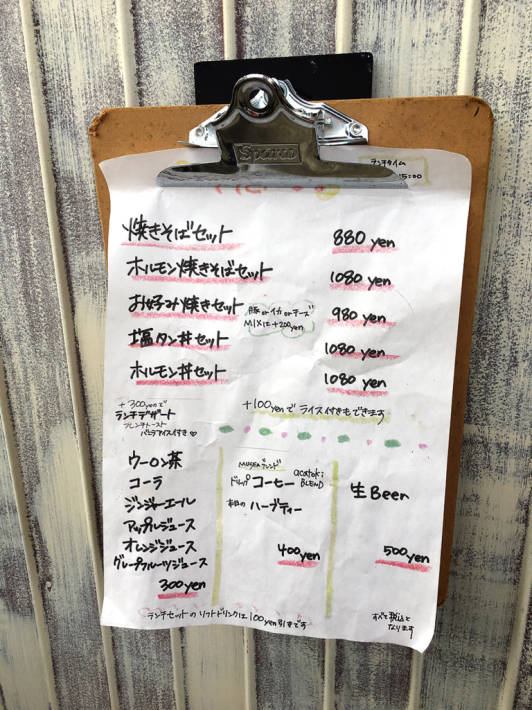 Sparta
ランチタイム
15:00
焼きそばセット 880 yen
ホルモン焼きそばセット 1080 yen
お好み焼きセット 豚 or イカ or チーズ 980 yen
MIXは+200yen
塩タン丼セット 1080 yen
ホルモン丼セット 1080 yen
+300yenで
ランチデザート
フレンチトースト
バニラアイス付き♡
+100yenでライス付きもできます
ウーロン茶
コーラ
ジンジャーエール
アップルジュース
オレンジジュース
グレープフルーツジュース
300yen
ブレンド
ドリップ コーヒー acatoki BLEND
本日の ハーブティー
400yen
生Beer
500yen
ランチセットのソフトドリンクは100yen引きです
すべて税込と
なります